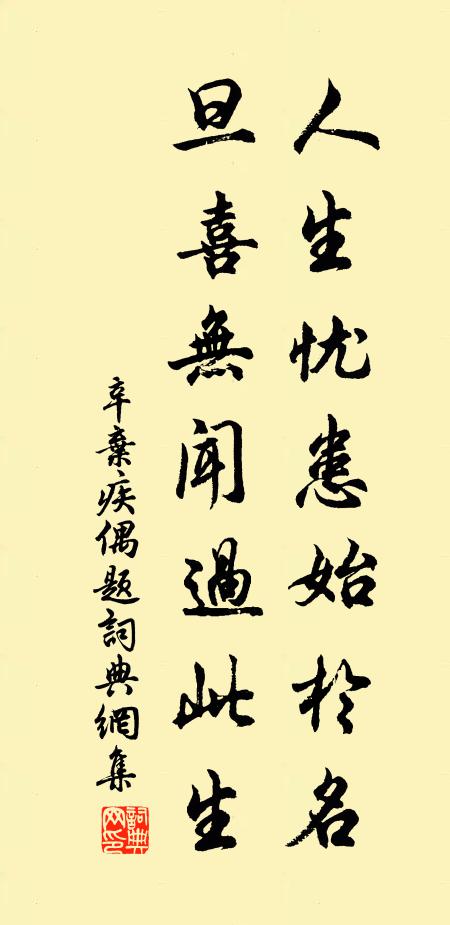 人生忧患始於名
旦喜無聞過此生
辛棄疾偶題詞典網集
詞典网印